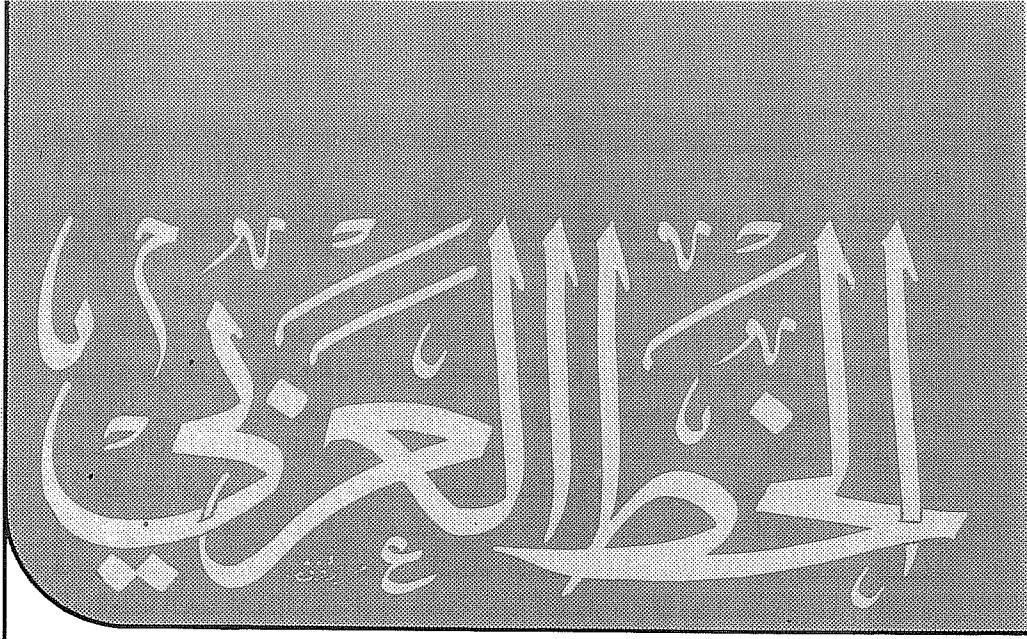 الخط العربي